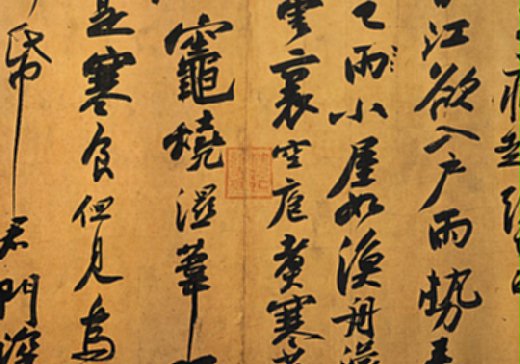 病起
江欲入户雨勢
雨小屋如漁舟濛
雲裏空庖煮寒
竈燒濕葦
是寒食但見烏
帋君門深